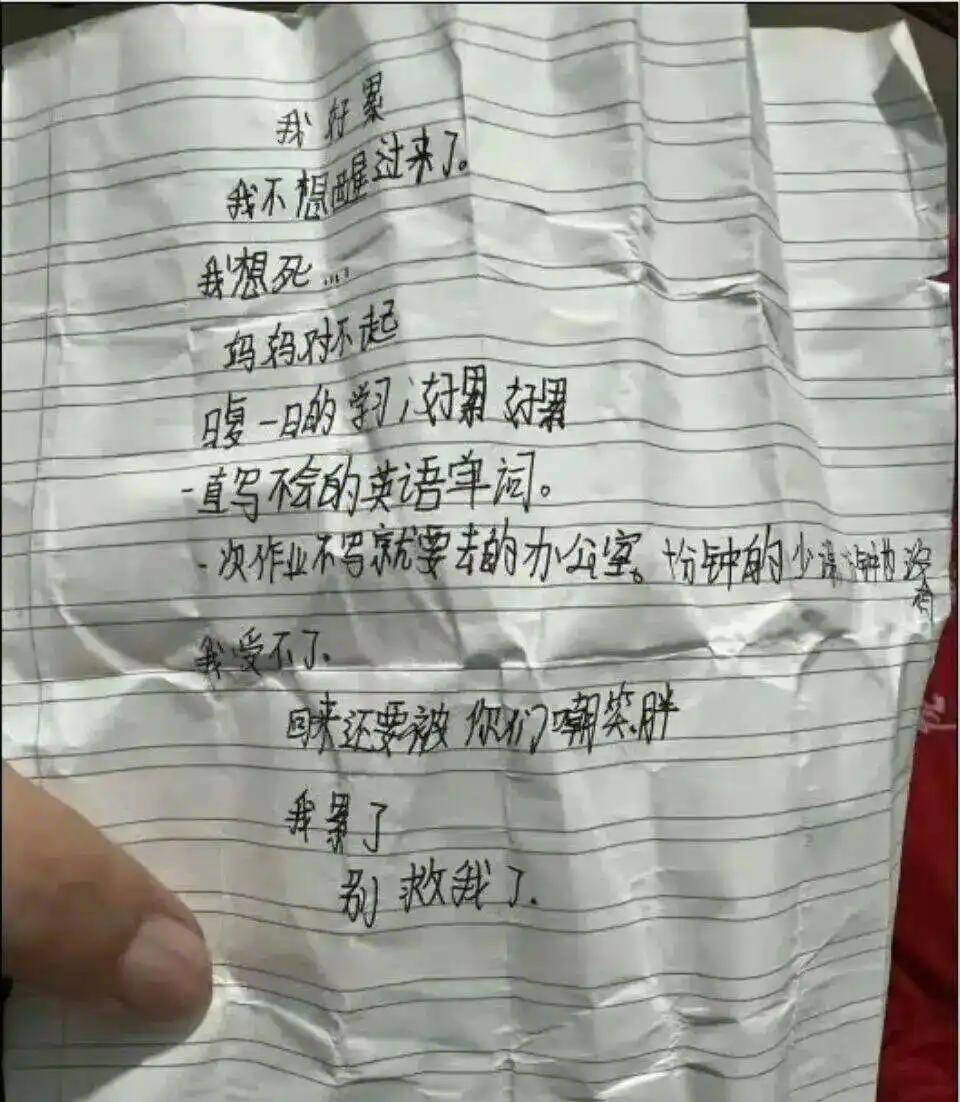 我好累
我不想醒过来了。
我想死...
妈妈对不起
日复一日的学习,好累 好累
一直写不会的英语单词。
一次作业不写就要去的办公室。十分钟的少课钟的没有
我受不了.
回来还要被你们嘲笑胖
我累了
别救我了.